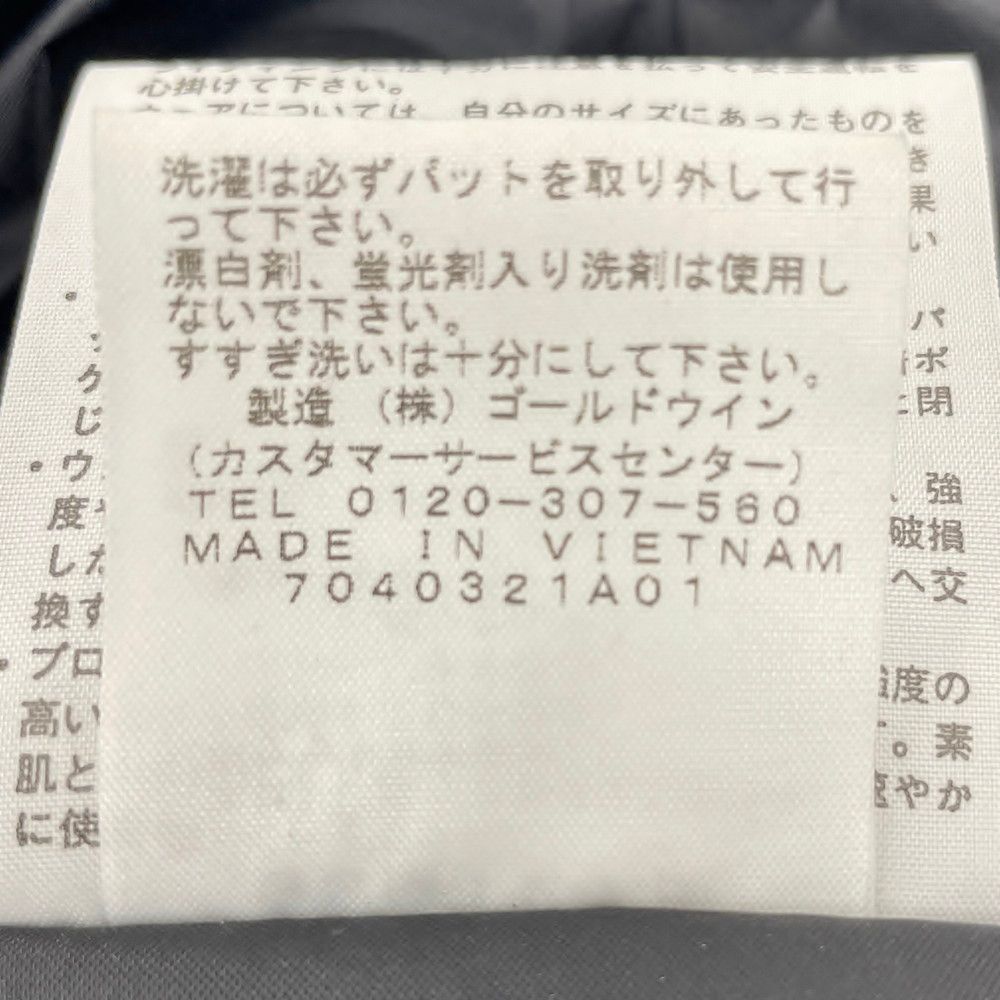 心掛けて下さい。
自分のサイズにあったものを
洗濯は必ずパットを取り外して行
って下さい。
漂白剤、蛍光剤入り洗剤は使用し
ないで下さい。
すすぎ洗いは十分にして下さい。
製造 (株) ゴールドウイン
(カスタマーサービスセンター)
TEL 0120-307-560
MADE IN VIETNAM
7040321A01
き
果
い
パ
ポ
じ 閉
・ウ 強
度 破損
した へ交
換す
・プロ 度の
高い 。素
肌と やか
に使